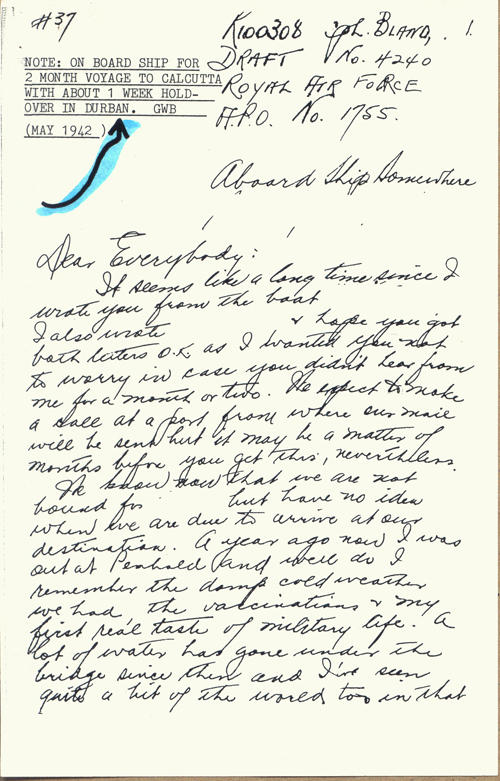 #37
K100308 Cpl. BLAND, . 1.
NOTE: ON BOARD SHIP FOR
2 MONTH VOYAGE TO CALCUTTA
WITH ABOUT 1 WEEK HOLD-
OVER IN DURBAN. GWB
(MAY 1942)
DRAFT No. 4240
ROYAL AIR FORCE
A.P.O. No. 1755.
Aboard Ship Somewhere
Dear Everybody:
It seems like a long time since I
wrote you from the boat
I also wrote & hope you got
both letters O.K. as I wanted you not
to worry in case you didn't hear from
me for a month or two. We expect to make
a call at a port from where our mail
will be sent but it may be a matter of
months before you get this, nevertheless.
We know now that we are not
bound for but have no idea
when we are due to arrive at our
destination. A year ago now I was
out at Penhold and well do I
remember the damp cold weather
we had, the vaccinations & my
first real taste of military life. A
lot of water has gone under the
bridge since then and I've seen
quite a bit of the world too in that